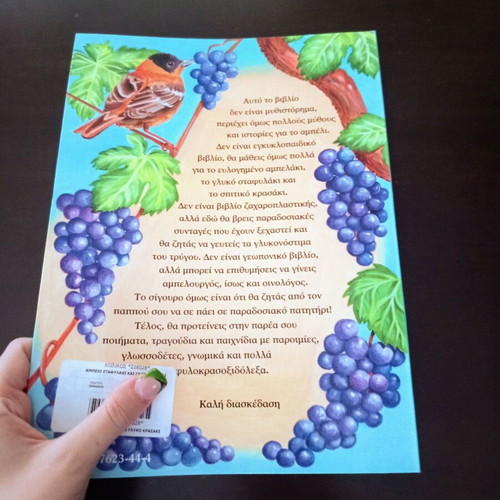 Αυτό το βιβλίο
δεν είναι μυθιστόρημα,
περιέχει όμως πολλούς μύθους
και ιστορίες για το αμπέλι.
Δεν είναι εγκυκλοπαιδικό
βιβλίο, θα μάθεις όμως πολλά
για το ευλογημένο αμπελάκι,
το γλυκό σταφυλάκι και
το σπιτικό κρασάκι.
Δεν είναι βιβλίο ζαχαροπλαστικής,
αλλά εδώ θα βρεις παραδοσιακές
συνταγές που έχουν ξεχαστεί και
θα ζητάς να γευτείς τα γλυκονόστιμα
του τρύγου. Δεν είναι γεωπονικό βιβλίο,
αλλά μπορεί να επιθυμήσεις να γίνεις
αμπελουργός, ίσως και οινολόγος.
Το σίγουρο όμως είναι ότι θα ζητάς από τον
παππού σου να σε πάει σε παραδοσιακό πατητήρι!
Τέλος, θα προτείνεις στην παρέα σου
ποιήματα, τραγούδια και παιχνίδια με παροιμίες,
γλωσσοδέτες, γνωμικά και πολλά
φυλοκρασοξιδόλεξα.
Καλή διασκέδαση
7623-44-4